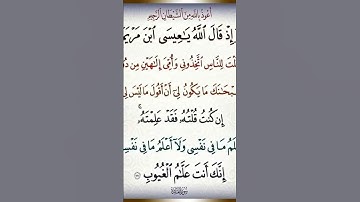 أَعُوذُ بِاللَّهِ مِنَ الشَّيْطَانِ الرَّجِيمِ
إِذْ قَالَ ٱللَّهُ يَـٰعِيسَى ٱبْنَ مَرْيَمَ
لْتَ لِلنَّاسِ ٱتَّخِذُونِى وَأُمِّىَ إِلَـٰهَيْنِ مِن دُو
بْحَـٰنَكَ مَا يَكُونُ لِىٓ أَنْ أَقُولَ مَا لَيْسَ لِى
إِن كُنتُ قُلْتُهُۥ فَقَدْ عَلِمْتَهُۥ ۚ
لَمُ مَا فِى نَفْسِى وَلَآ أَعْلَمُ مَا فِى نَفْسِ
إِنَّكَ أَنتَ عَلَّـٰمُ ٱلْغُيُوبِ